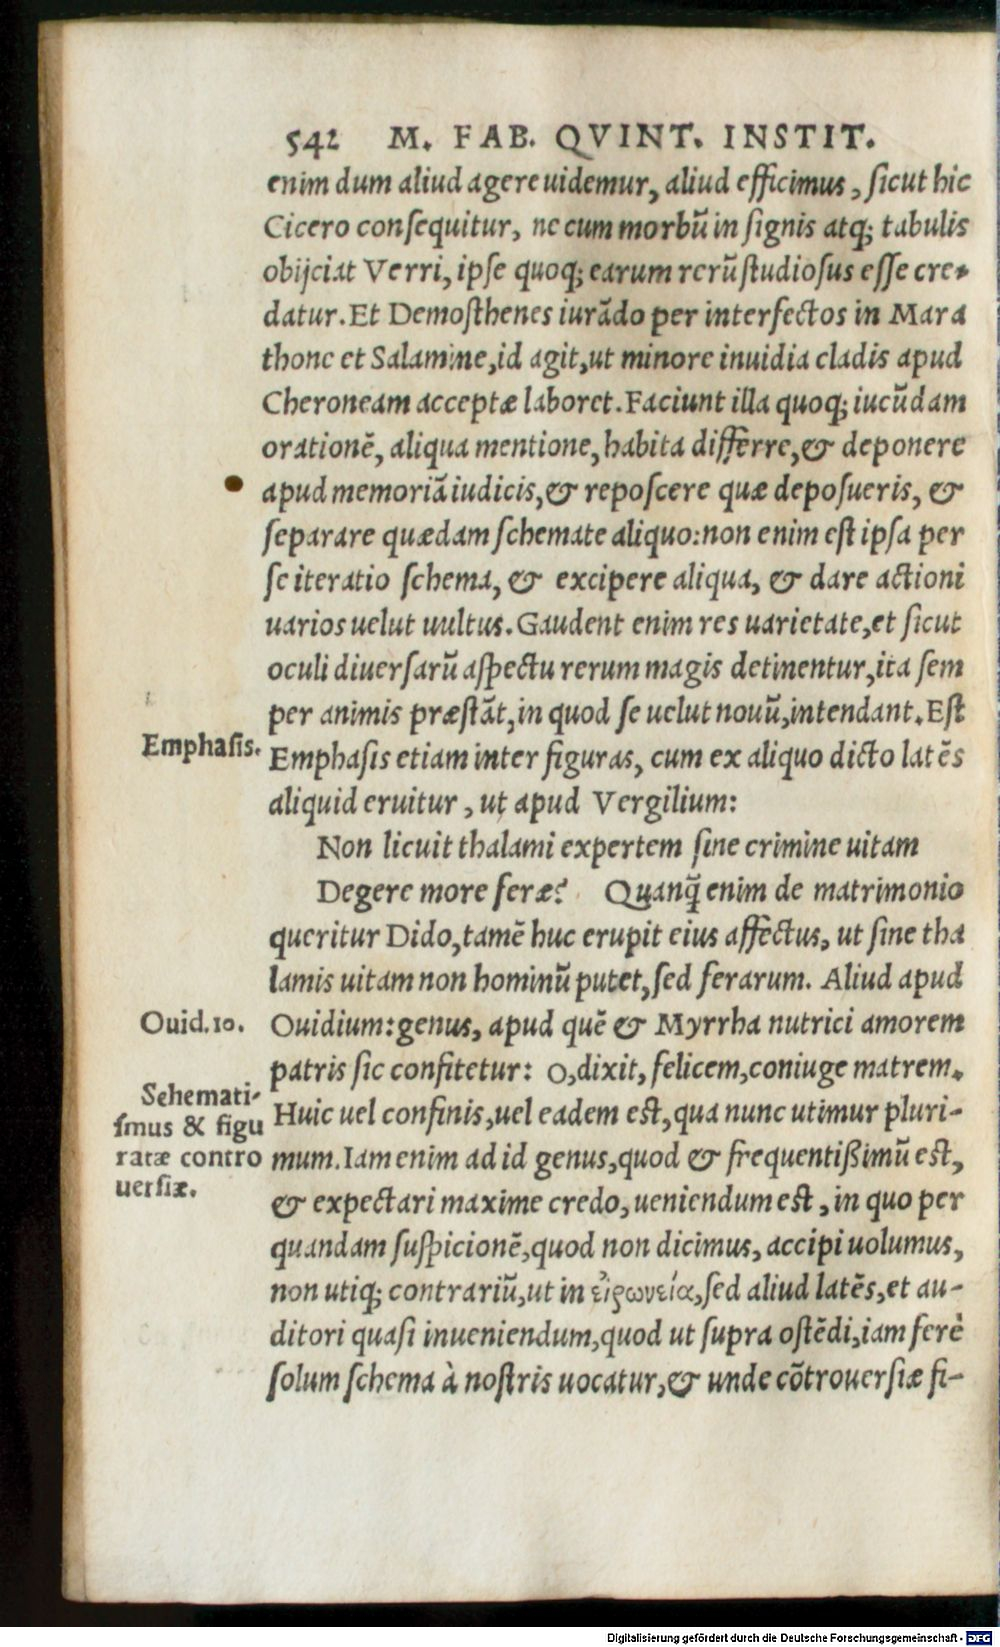 542 M. FAB. QVINT. INSTIT.
enim dum aliud agere uidemur, aliud efficimus, ſicut hic
Cicero conſequitur, ne cum morbū in ſignis atq; tabulis
obijciat Verri, ipſe quoq; earum rerū ſtudioſus eſſe cre-
datur. Et Demoſthenes iurādo per interfectos in Mara
thone et Salamine, id agit, ut minore inuidia cladis apud
Cheroneam acceptæ laboret. Faciunt illa quoq; iucūdam
orationē, aliqua mentione, habita differre, & deponere
apud memoriā iudicis, & repoſcere quæ depoſueris, &
ſeparare quædam ſchemate aliquo: non enim eſt ipſa per
ſe iteratio ſchema, & excipere aliqua, & dare actioni
uarios uelut uultus. Gaudent enim res uarietate, et ſicut
oculi diuerſarū aſpectu rerum magis detinentur, ita ſem
per animis præſtāt, in quod ſe uelut nouū, intendant. Eſt
Emphaſis.
Emphaſis etiam inter figuras, cum ex aliquo dicto latēs
aliquid eruitur, ut apud Vergilium:
Non licuit thalami expertem ſine crimine uitam
Degere more feræ? Quanq̄ enim de matrimonio
queritur Dido, tamē huc erupit eius affectus, ut ſine tha
lamis uitam non hominū putet, ſed ferarum. Aliud apud
Ouid. 10.
Ouidium: genus, apud quē & Myrrha nutrici amorem
patris ſic confitetur: O, dixit, felicem, coniuge matrem.
Sehemati-
ſmus & figu
ratæ contro
uerſiæ.
Huic uel confinis, uel eadem eſt, qua nunc utimur pluri-
mum. Iam enim ad id genus, quod & frequentißimū eſt,
& expectari maxime credo, ueniendum eſt, in quo per
quandam ſuſpicionē, quod non dicimus, accipi uolumus,
non utiq; contrariū, ut in εἰρωνεία, ſed aliud latēs, et au-
ditori quaſi inueniendum, quod ut ſupra oſtēdi, iam ferè
ſolum ſchema à noſtris uocatur, & unde cōtrouerſiæ fi-
Digitalisierung gefördert durch die Deutsche Forschungsgemeinschaft - DFG